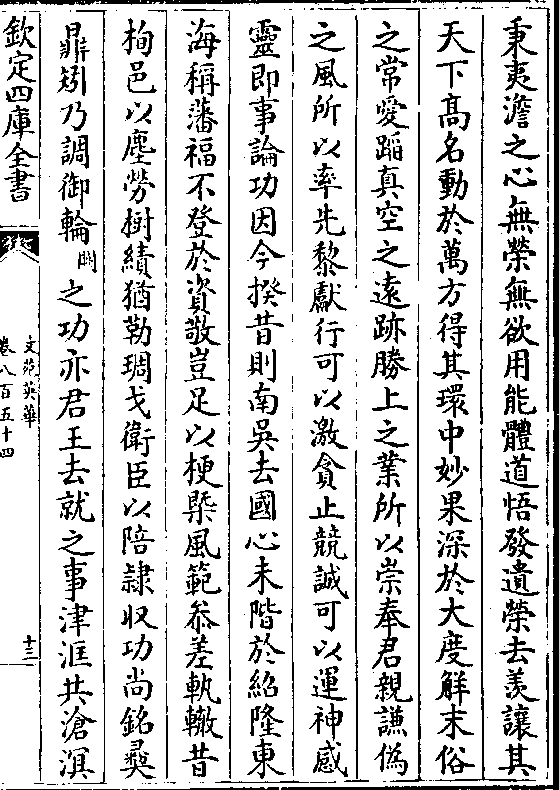 秉夷澹之心無榮無欲用能體道悟發遺榮去羡讓其
天下髙名動於萬方得其環中妙果深於大度解末俗
之常愛蹈真空之逺跡勝上之業所以崇奉君親謙偽
之風所以率先黎獻行可以激貪止競誠可以運神感
靈即事論功因今揆昔則南吳去國心未階於紹隆東
海稱藩福不登於資敬豈足以梗槩風範叅差軌轍昔
栒邑以塵勞樹績猶勒琱戈衛臣以陪隷収功尚銘彛
鼎矧乃調御輪闕之功亦君王去就之事津涯共滄溟
欽定四庫全書
文苑英華
卷八百五十四
十三